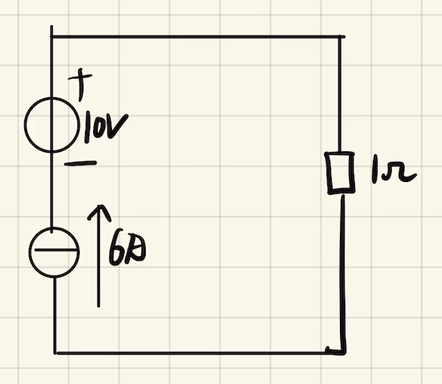 +
10V
−
6A
1Ω